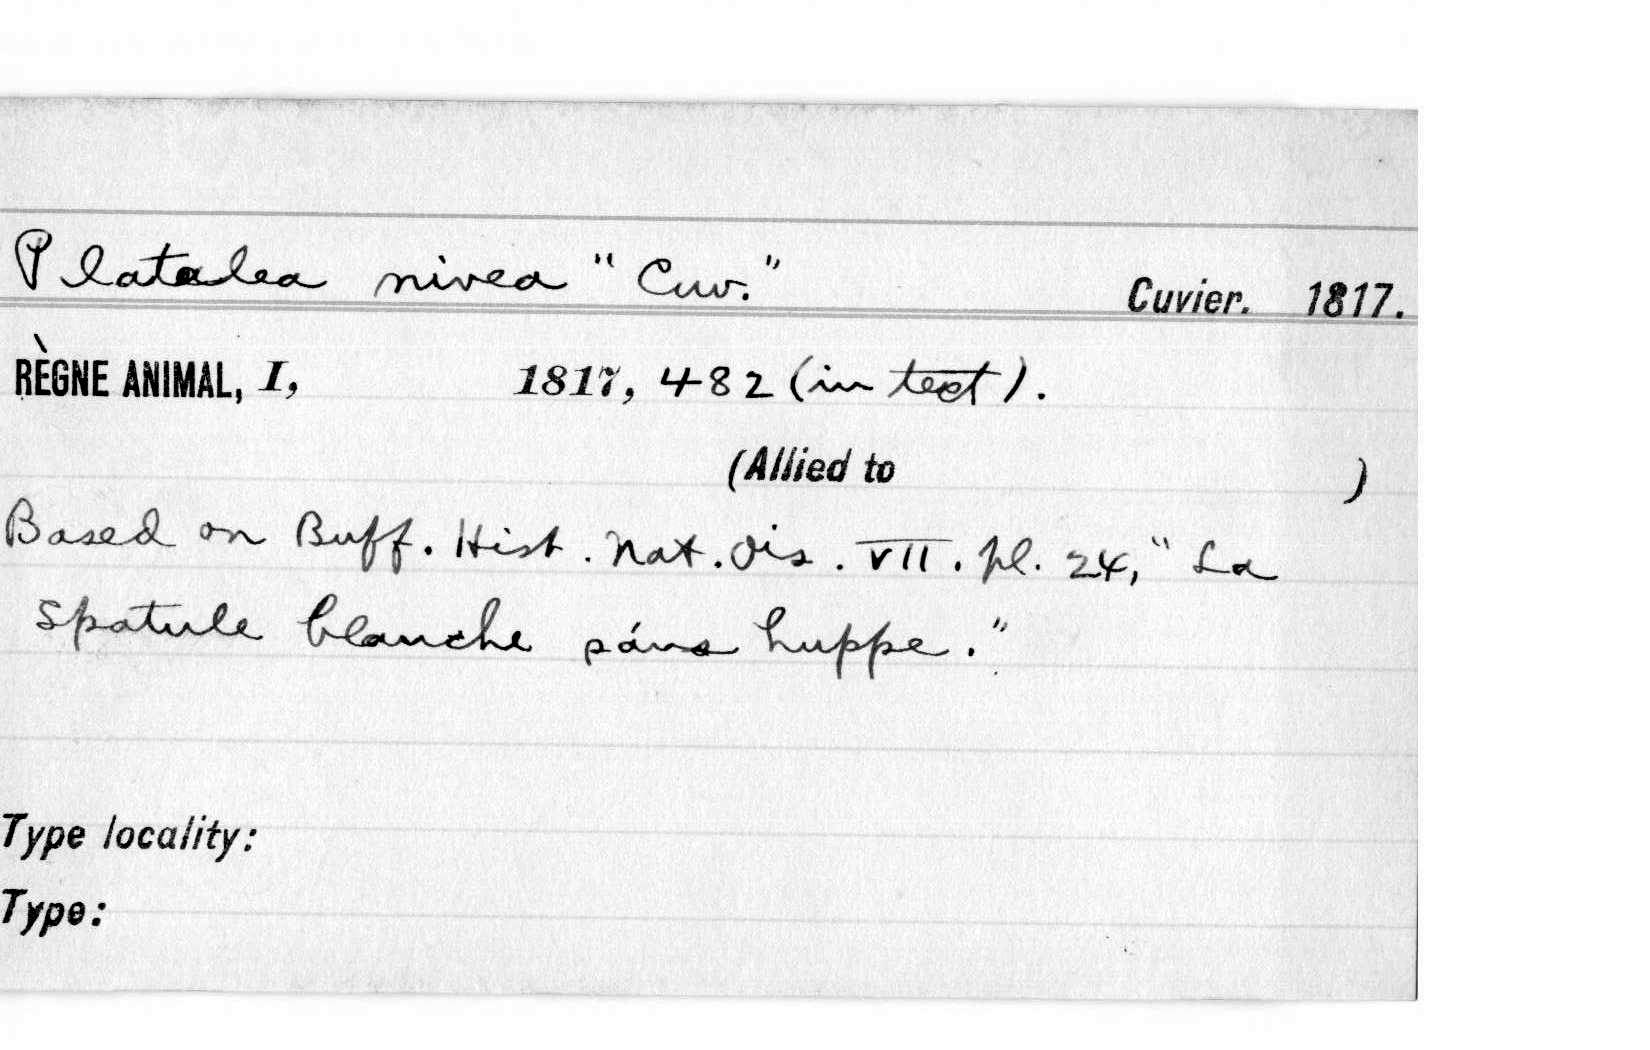 Platalea nivea "Cuv." Cuvier. 1817.
RÈGNE ANIMAL, I, 1817, 482 (in text).
(Allied to )
Based on Buff. Hist. Nat. Ois. VII. pl. 24, "La
Spatule blanche sáns huppe."
Type locality:
Type: